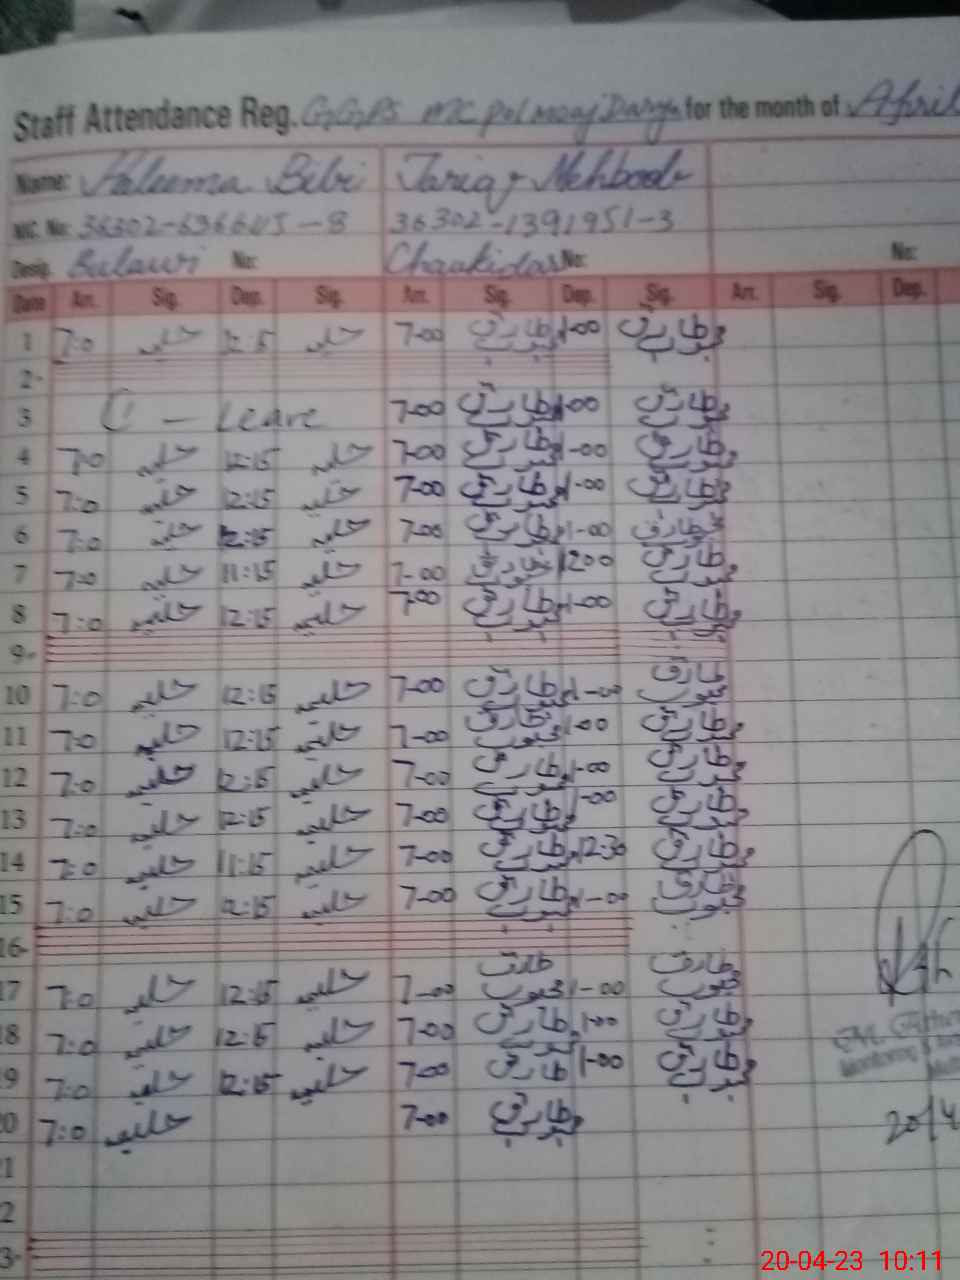 Staff Attendance Reg. G.G.P.S MC Pol moaj Darya for the month of April
Name: Haleema Bibi Tariq Mehboob
NIC. No: 36302-6366115-8 36302-1391951-3
Desig. Bulawi No: Chaukidar No: No:
Date Arr. Sig. Dep. Sig. Arr. Sig. Dep. Sig. Arr. Sig. Dep.
1 7:0 حلیمہ 12:15 حلیمہ 7-00 طارق محبوب 1-00 طارق محبوب
2-
3 C - Leave 7-00 طارق محبوب 1-00 طارق محبوب
4 7:0 حلیمہ 12:15 حلیمہ 7-00 طارق محبوب 1-00 طارق محبوب
5 7:0 حلیمہ 12:15 حلیمہ 7-00 طارق محبوب 1-00 طارق محبوب
6 7:0 حلیمہ 12:15 حلیمہ 7-00 طارق محبوب 1-00 طارق محبوب
7 7:0 حلیمہ 11:15 حلیمہ 7-00 طارق محبوب 1200 طارق محبوب
8 7:0 حلیمہ 12:15 حلیمہ 7-00 طارق محبوب 1-00 طارق محبوب
9-
10 7:0 حلیمہ 12:15 حلیمہ 7-00 طارق محبوب 1-00 طارق محبوب
11 7:0 حلیمہ 12:15 حلیمہ 7-00 طارق محبوب 1-00 طارق محبوب
12 7:0 حلیمہ 12:15 حلیمہ 7-00 طارق محبوب 1-00 طارق محبوب
13 7:0 حلیمہ 12:15 حلیمہ 7-00 طارق محبوب 1-00 طارق محبوب
14 7:0 حلیمہ 11:15 حلیمہ 7-00 طارق محبوب 12:30 طارق محبوب
15 7:0 حلیمہ 12:15 حلیمہ 7-00 طارق محبوب 1-00 طارق محبوب
16-
17 7:0 حلیمہ 12:15 حلیمہ 7-00 طارق محبوب 1-00 طارق محبوب
18 7:0 حلیمہ 12:15 حلیمہ 7-00 طارق محبوب 1-00 طارق محبوب
19 7:0 حلیمہ 12:15 حلیمہ 7-00 طارق محبوب 1-00 طارق محبوب
Monitoring
20 7:0 حلیمہ 7-00 طارق محبوب 20/4
1
2
3-
20-04-23 10:11